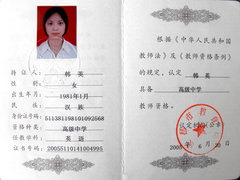 持证人 韩英
性别 女
出生年月 1981年1月
民族 汉族
身份证号码 511381198101092568
资格种类 高级中学
任教学科 英语
证书号码 20055110141004995
根据《中华人民共和国
教师法》及《教师资格条例》
的规定，认定 韩英
具备 高级中学
教师资格。
认定机构（公章）
2005年6月30日